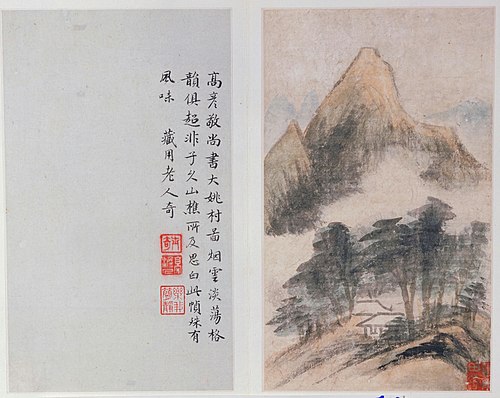 高彥敬尚書大姚村啚烟雲淡蕩格
韻俱超非子久山樵所及思白此幀殊有
風味　藏用老人奇